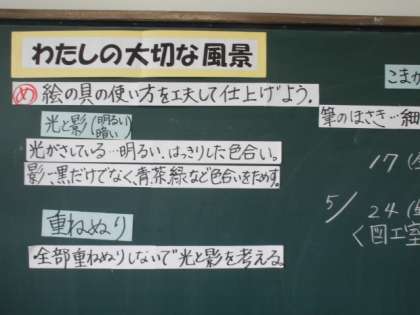 わたしの大切な風景
め 絵の具の使い方を工夫して仕上げよう.
光と影(明るい 暗い)
光がさしている…明るい、はっきりした色合い。
影、黒だけでなく、青、茶、緑、など色合いをためす。
重ねぬり
全部重ねぬりしないで光と影を考える。
こまか
筆のほさき…細
17
5/24
く図工室